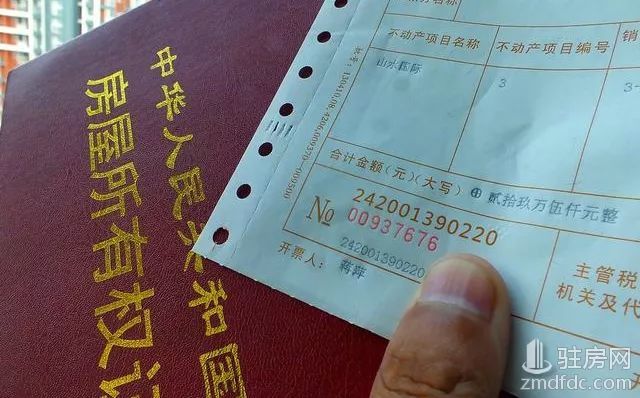 中华人民共和国
房屋所有权证
不动产项目名称
不动产项目编号
销
山水国际
3
3-
批号：130410,08,4206,009370-009500
合计金额(元)(大写)
⊕ 贰拾玖万伍仟元整
242001390220
No 00937676
242001390220
开票人：蒋萍
主管税
机关及代
驻房网
zmdfdc.com